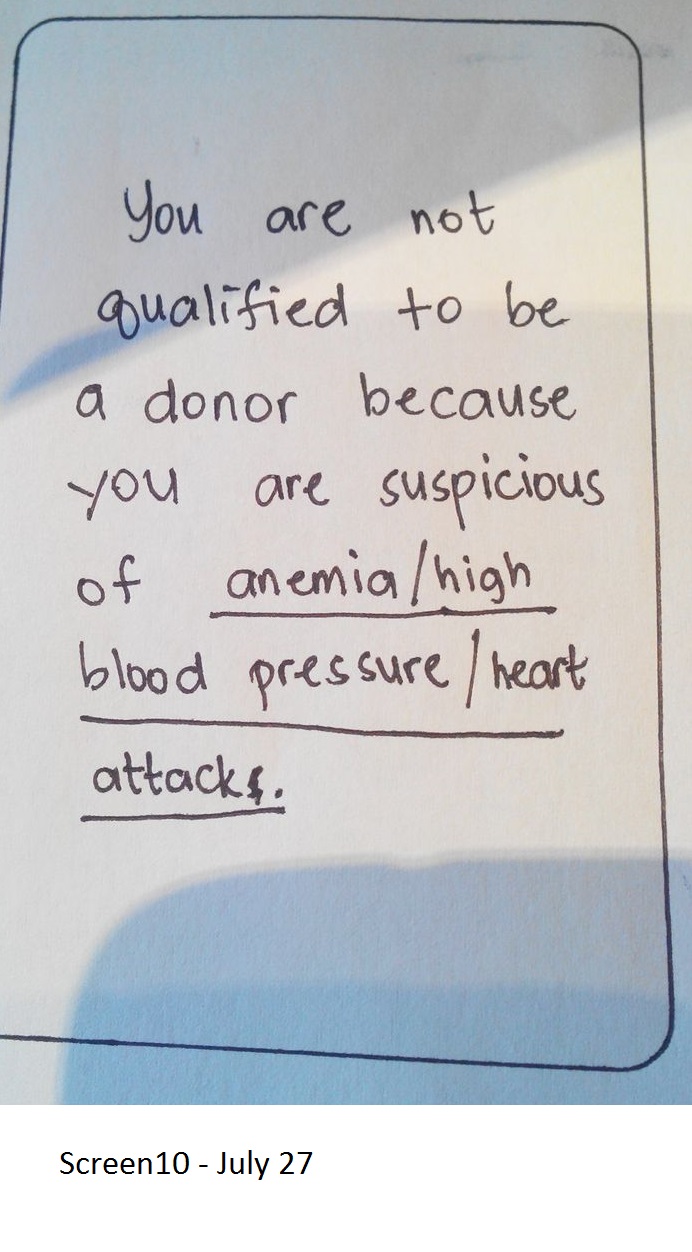 You are not
qualified to be
a donor because
you are suspicious
of anemia/high
blood pressure/heart
attacks.
Screen10 - July 27